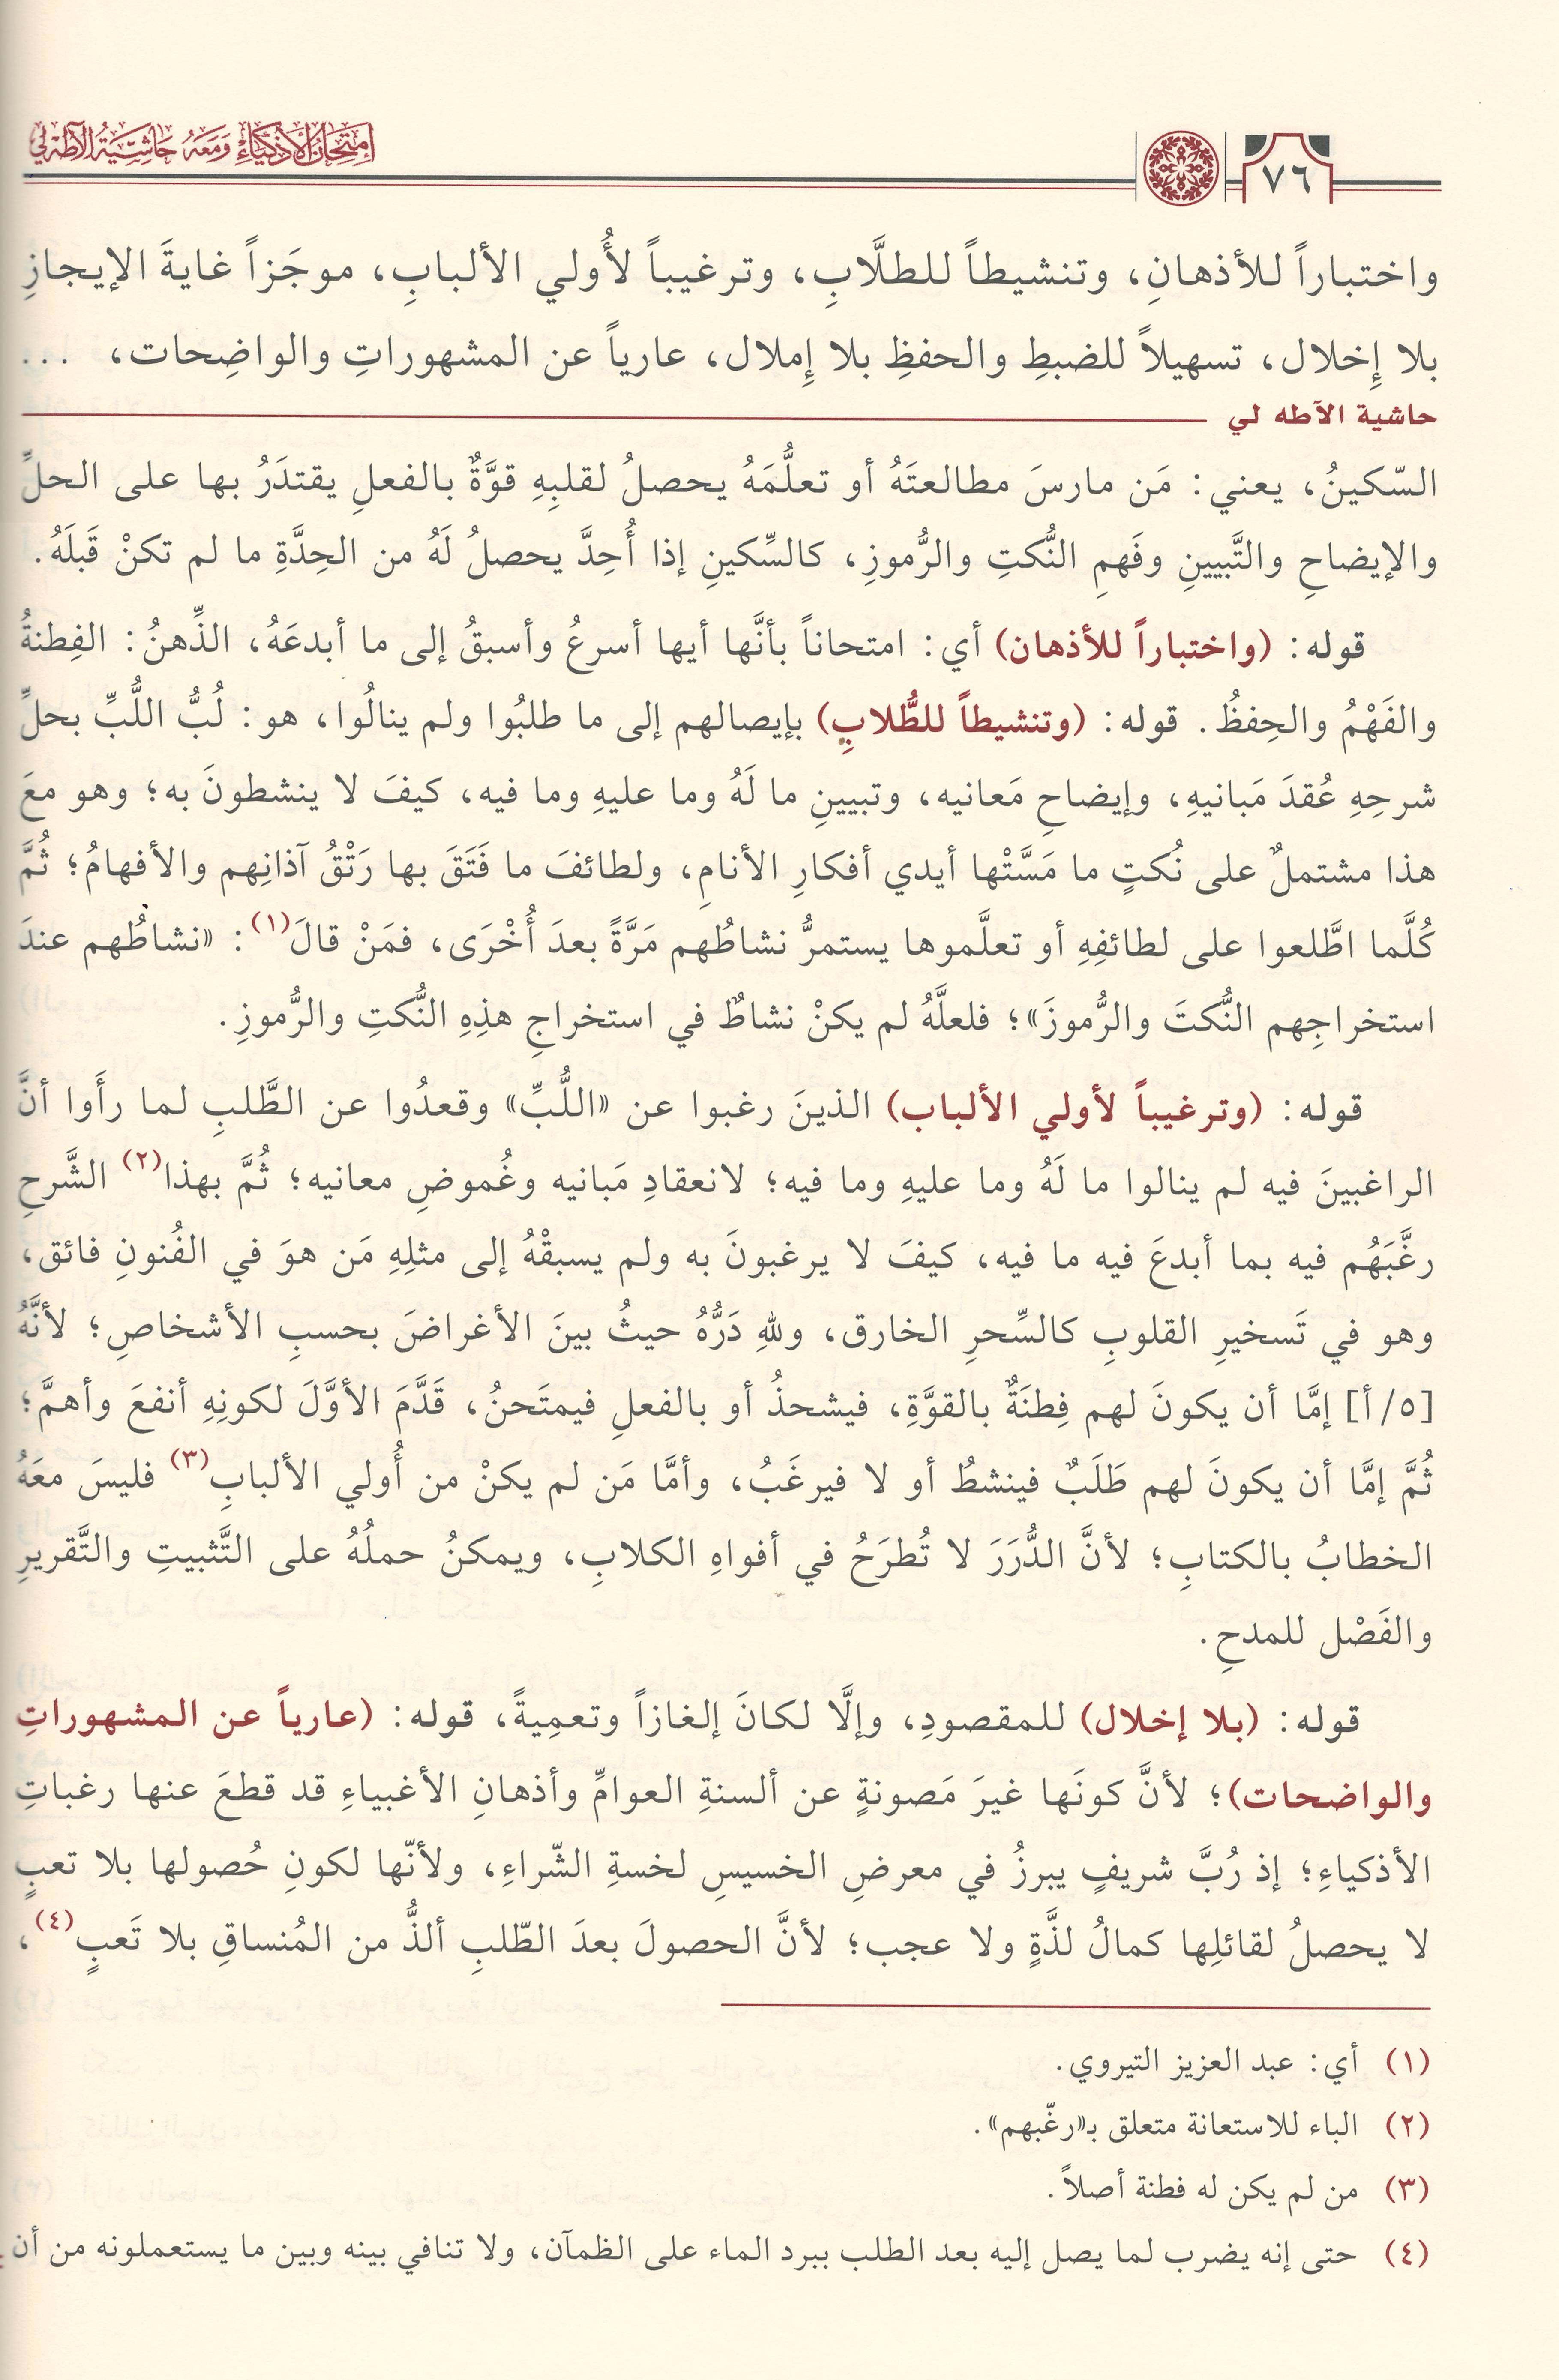 امتحان الأذكياء ومعه حاشية الآطه لي
٧٦
واختباراً للأذهانِ، وتنشيطاً للطلَّابِ، وترغيباً لأُولي الألبابِ، موجَزاً غايةَ الإيجازِ
بلا إِخلال، تسهيلاً للضبطِ والحفظِ بلا إِملال، عارياً عن المشهوراتِ والواضِحات، ...
حاشية الآطه لي
السّكينُ، يعني: مَن مارسَ مطالعتَهُ أو تعلُّمَهُ يحصلُ لقلبِهِ قوَّةٌ بالفعلِ يقتدَرُ بها على الحلِّ
والإيضاحِ والتَّبيينِ وفَهمِ النُّكتِ والرُّموزِ، كالسِّكينِ إذا أُحِدَّ يحصلُ لَهُ من الحِدَّةِ ما لم تكنْ قَبلَهُ.
قوله: (واختباراً للأذهان) أي: امتحاناً بأنَّها أيها أسرعُ وأسبقُ إلى ما أبدعَهُ، الذِّهنُ: الفِطنةُ
والفَهْمُ والحِفظُ. قوله: (وتنشيطاً للطُّلابِ) بإيصالهم إلى ما طلبُوا ولم ينالُوا، هو: لُبُّ اللُّبِّ بحلِّ
شرحِهِ عُقدَ مَبانيهِ، وإيضاحِ مَعانيه، وتبيينِ ما لَهُ وما عليهِ وما فيه، كيفَ لا ينشطونَ به؛ وهو معَ
هذا مشتملٌ على نُكتٍ ما مَسَّتْها أيدي أفكارِ الأنامِ، ولطائفَ ما فَتَقَ بها رَتْقُ آذانِهم والأفهامُ؛ ثُمَّ
كُلَّما اطَّلعوا على لطائفِهِ أو تعلَّموها يستمرُّ نشاطُهم مَرَّةً بعدَ أُخْرَى، فمَنْ قالَ(١): «نشاطُهم عندَ
استخراجِهم النُّكتَ والرُّموزَ»؛ فلعلَّهُ لم يكنْ نشاطٌ في استخراجِ هذِهِ النُّكتِ والرُّموزِ.
قوله: (وترغيباً لأولي الألباب) الذينَ رغبوا عن «اللُّبِّ» وقعدُوا عن الطَّلبِ لما رأَوا أنَّ
الراغبينَ فيه لم ينالوا ما لَهُ وما عليهِ وما فيه؛ لانعقادِ مَبانيه وغُموضِ معانيه؛ ثُمَّ بهذا(٢) الشَّرحِ
رغَّبَهُم فيه بما أبدعَ فيه ما فيه، كيفَ لا يرغبونَ به ولم يسبقْهُ إلى مثلِهِ مَن هوَ في الفُنونِ فائق،
وهو في تَسخيرِ القلوبِ كالسِّحرِ الخارق، وللهِ دَرُّهُ حيثُ بينَ الأغراضَ بحسبِ الأشخاصِ؛ لأنَّهُ
[٥/أ] إمَّا أن يكونَ لهم فِطنَةٌ بالقوَّةِ، فيشحذُ أو بالفعلِ فيمتَحنُ، قَدَّمَ الأوَّلَ لكونِهِ أنفعَ وأهمَّ؛
ثُمَّ إمَّا أن يكونَ لهم طَلَبٌ فينشطُ أو لا فيرغَبُ، وأمَّا مَن لم يكنْ من أُولي الألبابِ(٣) فليسَ معَهُ
الخطابُ بالكتابِ؛ لأنَّ الدُّرَرَ لا تُطرَحُ في أفواهِ الكلابِ، ويمكنُ حملُهُ على التَّثبيتِ والتَّقريرِ
والفَصْل للمدحِ.
قوله: (بلا إخلال) للمقصودِ، وإلَّا لكانَ إلغازاً وتعمِيةً، قوله: (عارياً عن المشهوراتِ
والواضحات)؛ لأنَّ كونَها غيرَ مَصونةٍ عن ألسنةِ العوامِّ وأذهانِ الأغبياءِ قد قطعَ عنها رغباتِ
الأذكياءِ؛ إذ رُبَّ شريفٍ يبرزُ في معرضِ الخسيسِ لخسةِ الشّراءِ، ولأنّها لكونِ حُصولها بلا تعبٍ
لا يحصلُ لقائلِها كمالُ لذَّةٍ ولا عجب؛ لأنَّ الحصولَ بعدَ الطّلبِ ألذُّ من المُنساقِ بلا تَعبٍ(٤)،
(١) أي: عبد العزيز التيروي.
(٢) الباء للاستعانة متعلق بـ«رغّبهم».
(٣) من لم يكن له فطنة أصلاً.
(٤) حتى إنه يضرب لما يصل إليه بعد الطلب ببرد الماء على الظمآن، ولا تنافي بينه وبين ما يستعملونه من أن